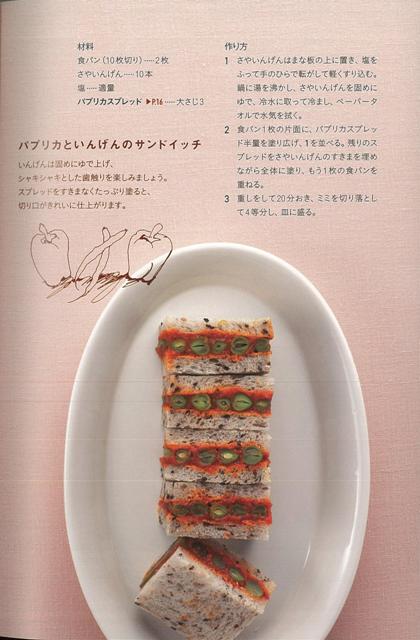 材料
食パン(10枚切り)……2枚
さやいんげん……10本
塩……適量
パプリカスプレッド ▶P.16 ……大さじ3
パプリカといんげんのサンドイッチ
いんげんは固めにゆで上げ、
シャキシャキとした歯触りを楽しみましょう。
スプレッドをすきまなくたっぷり塗ると、
切り口がきれいに仕上がります。
作り方
1 さやいんげんはまな板の上に置き、塩を
ふって手のひらで転がして軽くすり込む。
鍋に湯を沸かし、さやいんげんを固めに
ゆで、冷水に取って冷まし、ペーパータ
オルで水気を拭く。
2 食パン1枚の片面に、パプリカスプレッ
ド半量を塗り広げ、1を並べる。残りのス
プレッドをさやいんげんのすきまを埋め
ながら全体に塗り、もう1枚の食パンを
重ねる。
3 重しをして20分おき、ミミを切り落とし
て4等分し、皿に盛る。